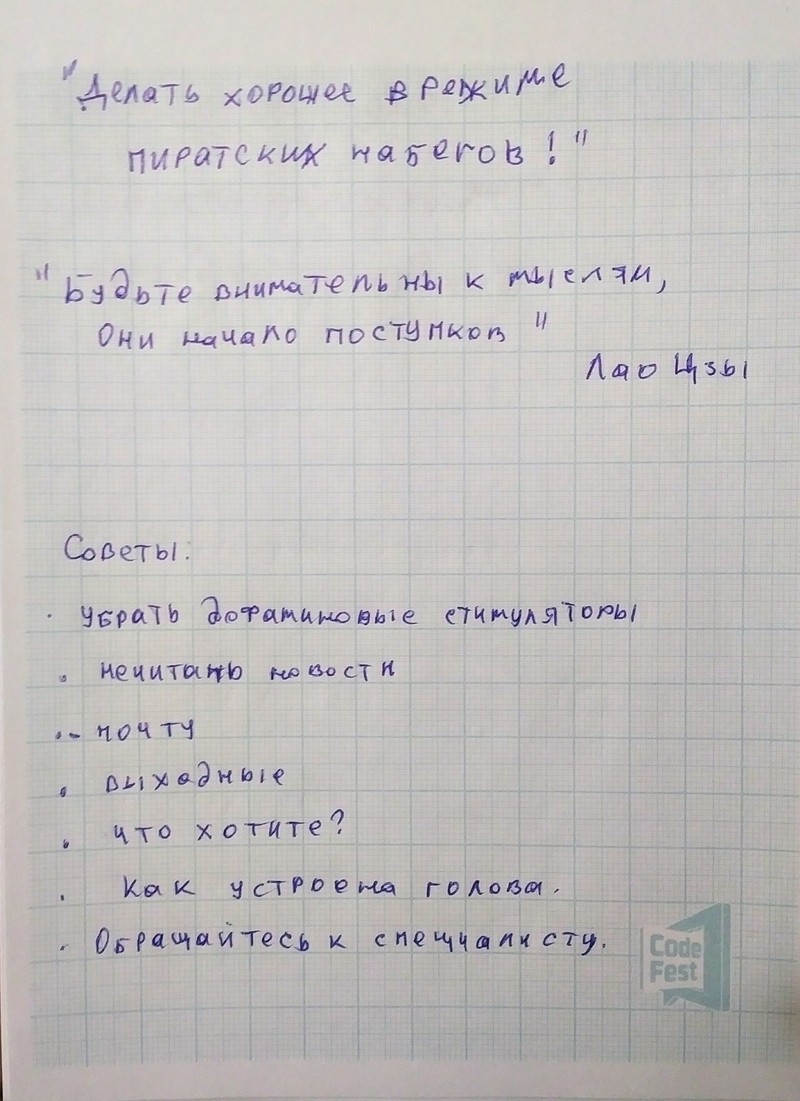 "Делать хорошее в режиме
пиратских набегов!"
"Будьте внимательны к мыслям,
Они начало поступков"
Лао Цзы
Советы:
· убрать дофаминовые стимуляторы
· нечитать новости
·- почту
· выходные
· что хотите?
· Как устроена голова.
· Обращайтесь к специалисту.
Code
Fest